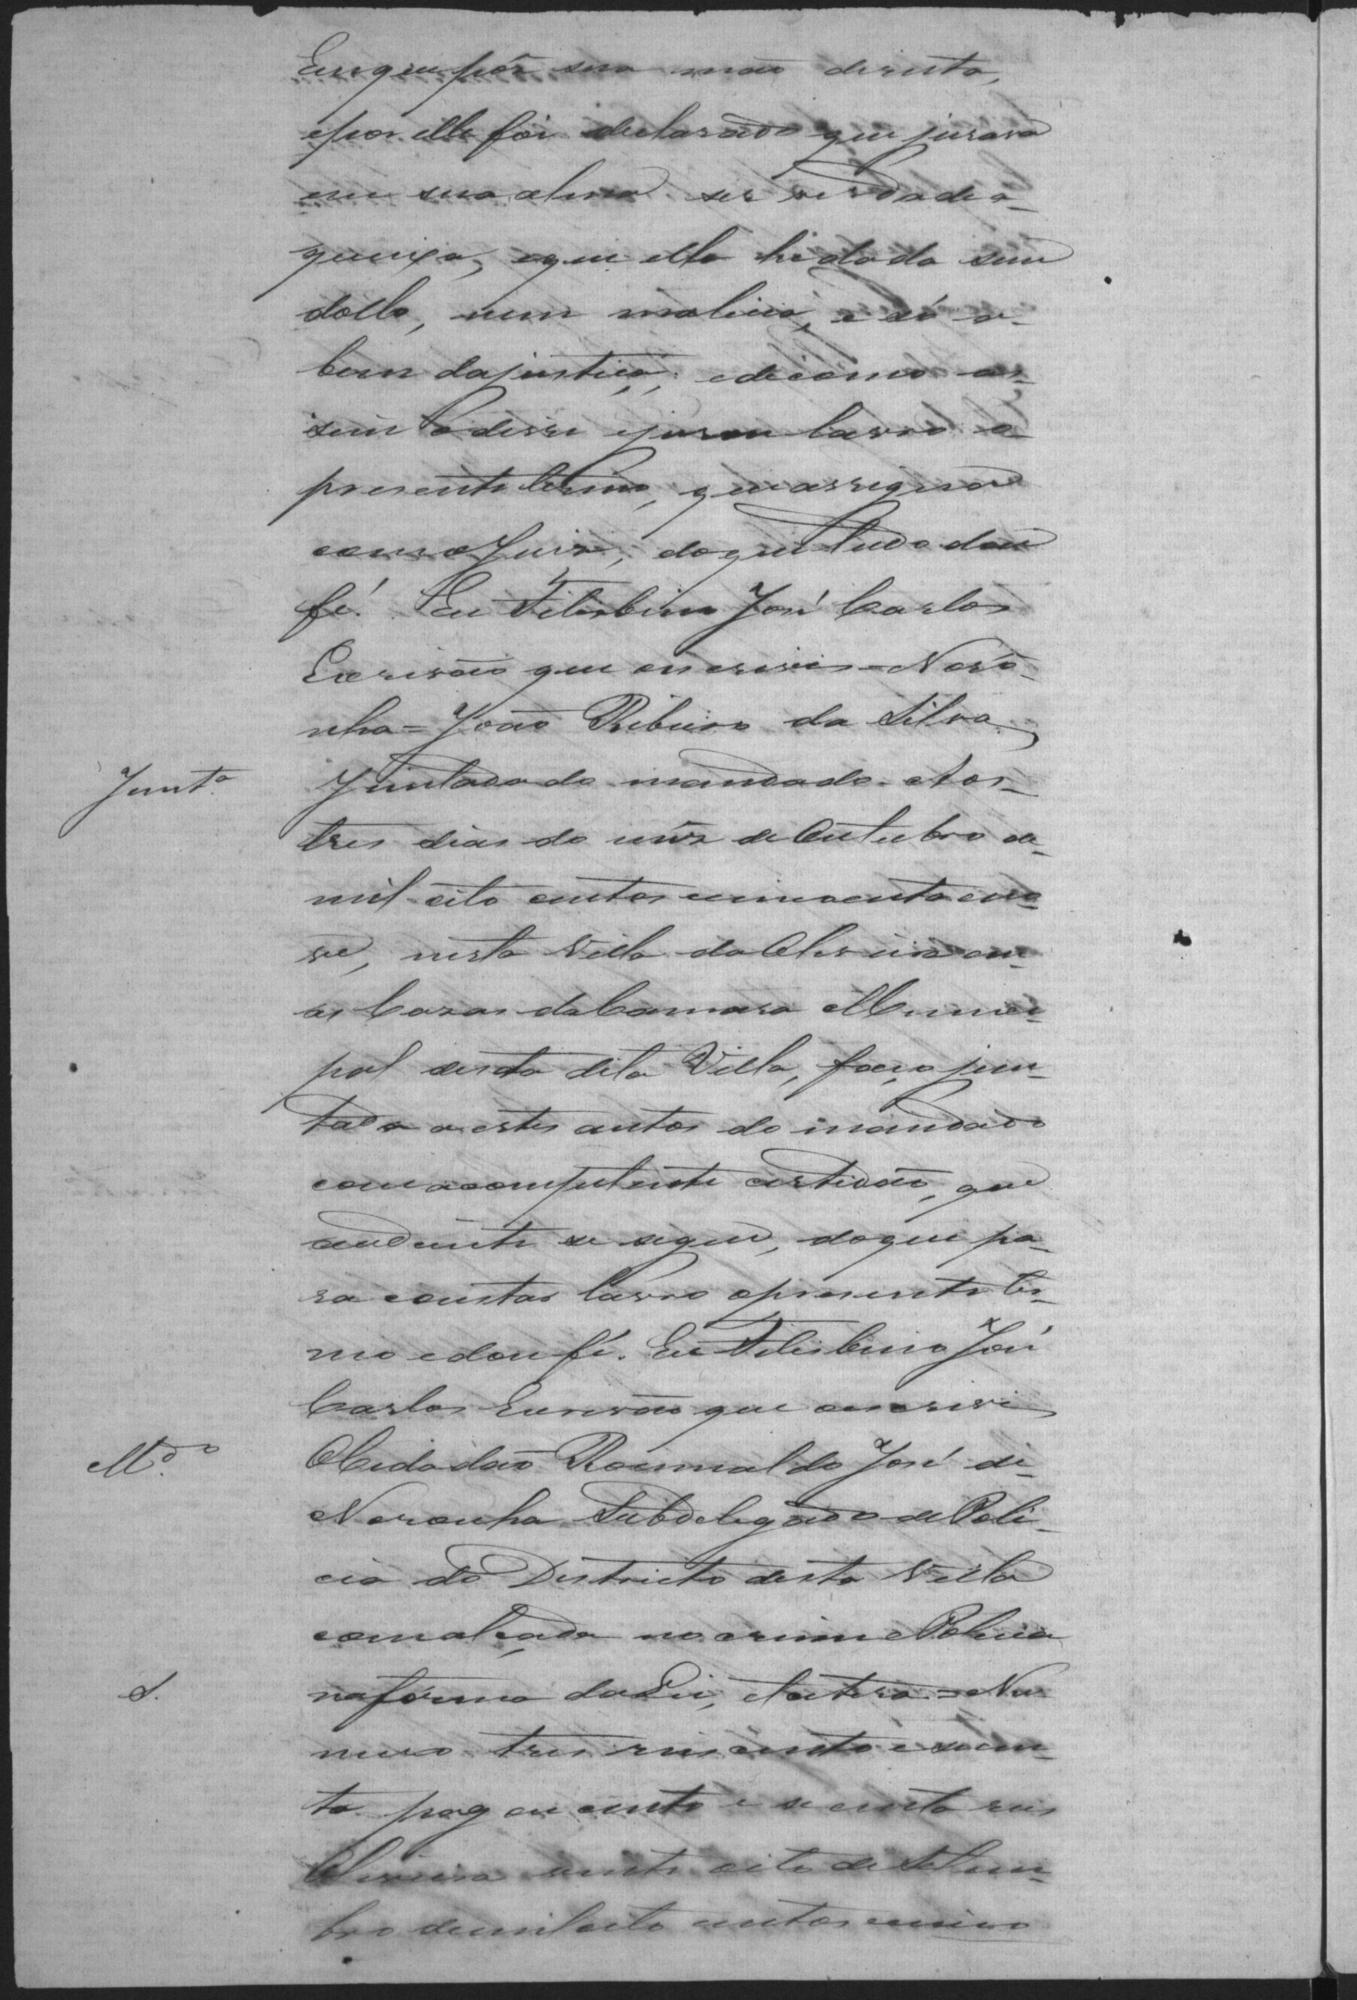 em que pôs sua mão direita,
e por elle foi declarado que jurava
em sua alma ser verdade a
queixa, e que ella hé dada sem
dollo, nem malicia, e só a
bem da justiça, e de como as-
sim o disse e jurou lavro o
presente termo, que assigna
com o Juiz, do que tudo dou
fé. Eu Felisbino José Carlos
Escrivão que escrevi = Noro-
nha = João Ribeiro da Silva.
Junt.ª Juntada do mandado. Aos
tres dias do mês de Outubro de
mil oito centos cincoenta e no-
ve, nesta Villa da Oliveira em
as Cazas da Camara Munici-
pal desta dita Villa, faço jun-
tada a estes autos do mandado
com a competente certidão, que
ao diente se segue, do que pa-
ra constar lavro o presente ter-
mo e dou fé. Eu Felisbino José
Carlos Escrivão que escrevi
M.do O Cidadão Romualdo José de
Noronha Subdelegado de Poli-
cia do Districto desta Villa
com alçada no crime e Policia
S. na forma da Lei, etcetera = Nu-
mero tres reis cento e secen-
ta pag cento e secenta reis
Oliveira vinte oito de Setem-
bro de mil oito centos cinco